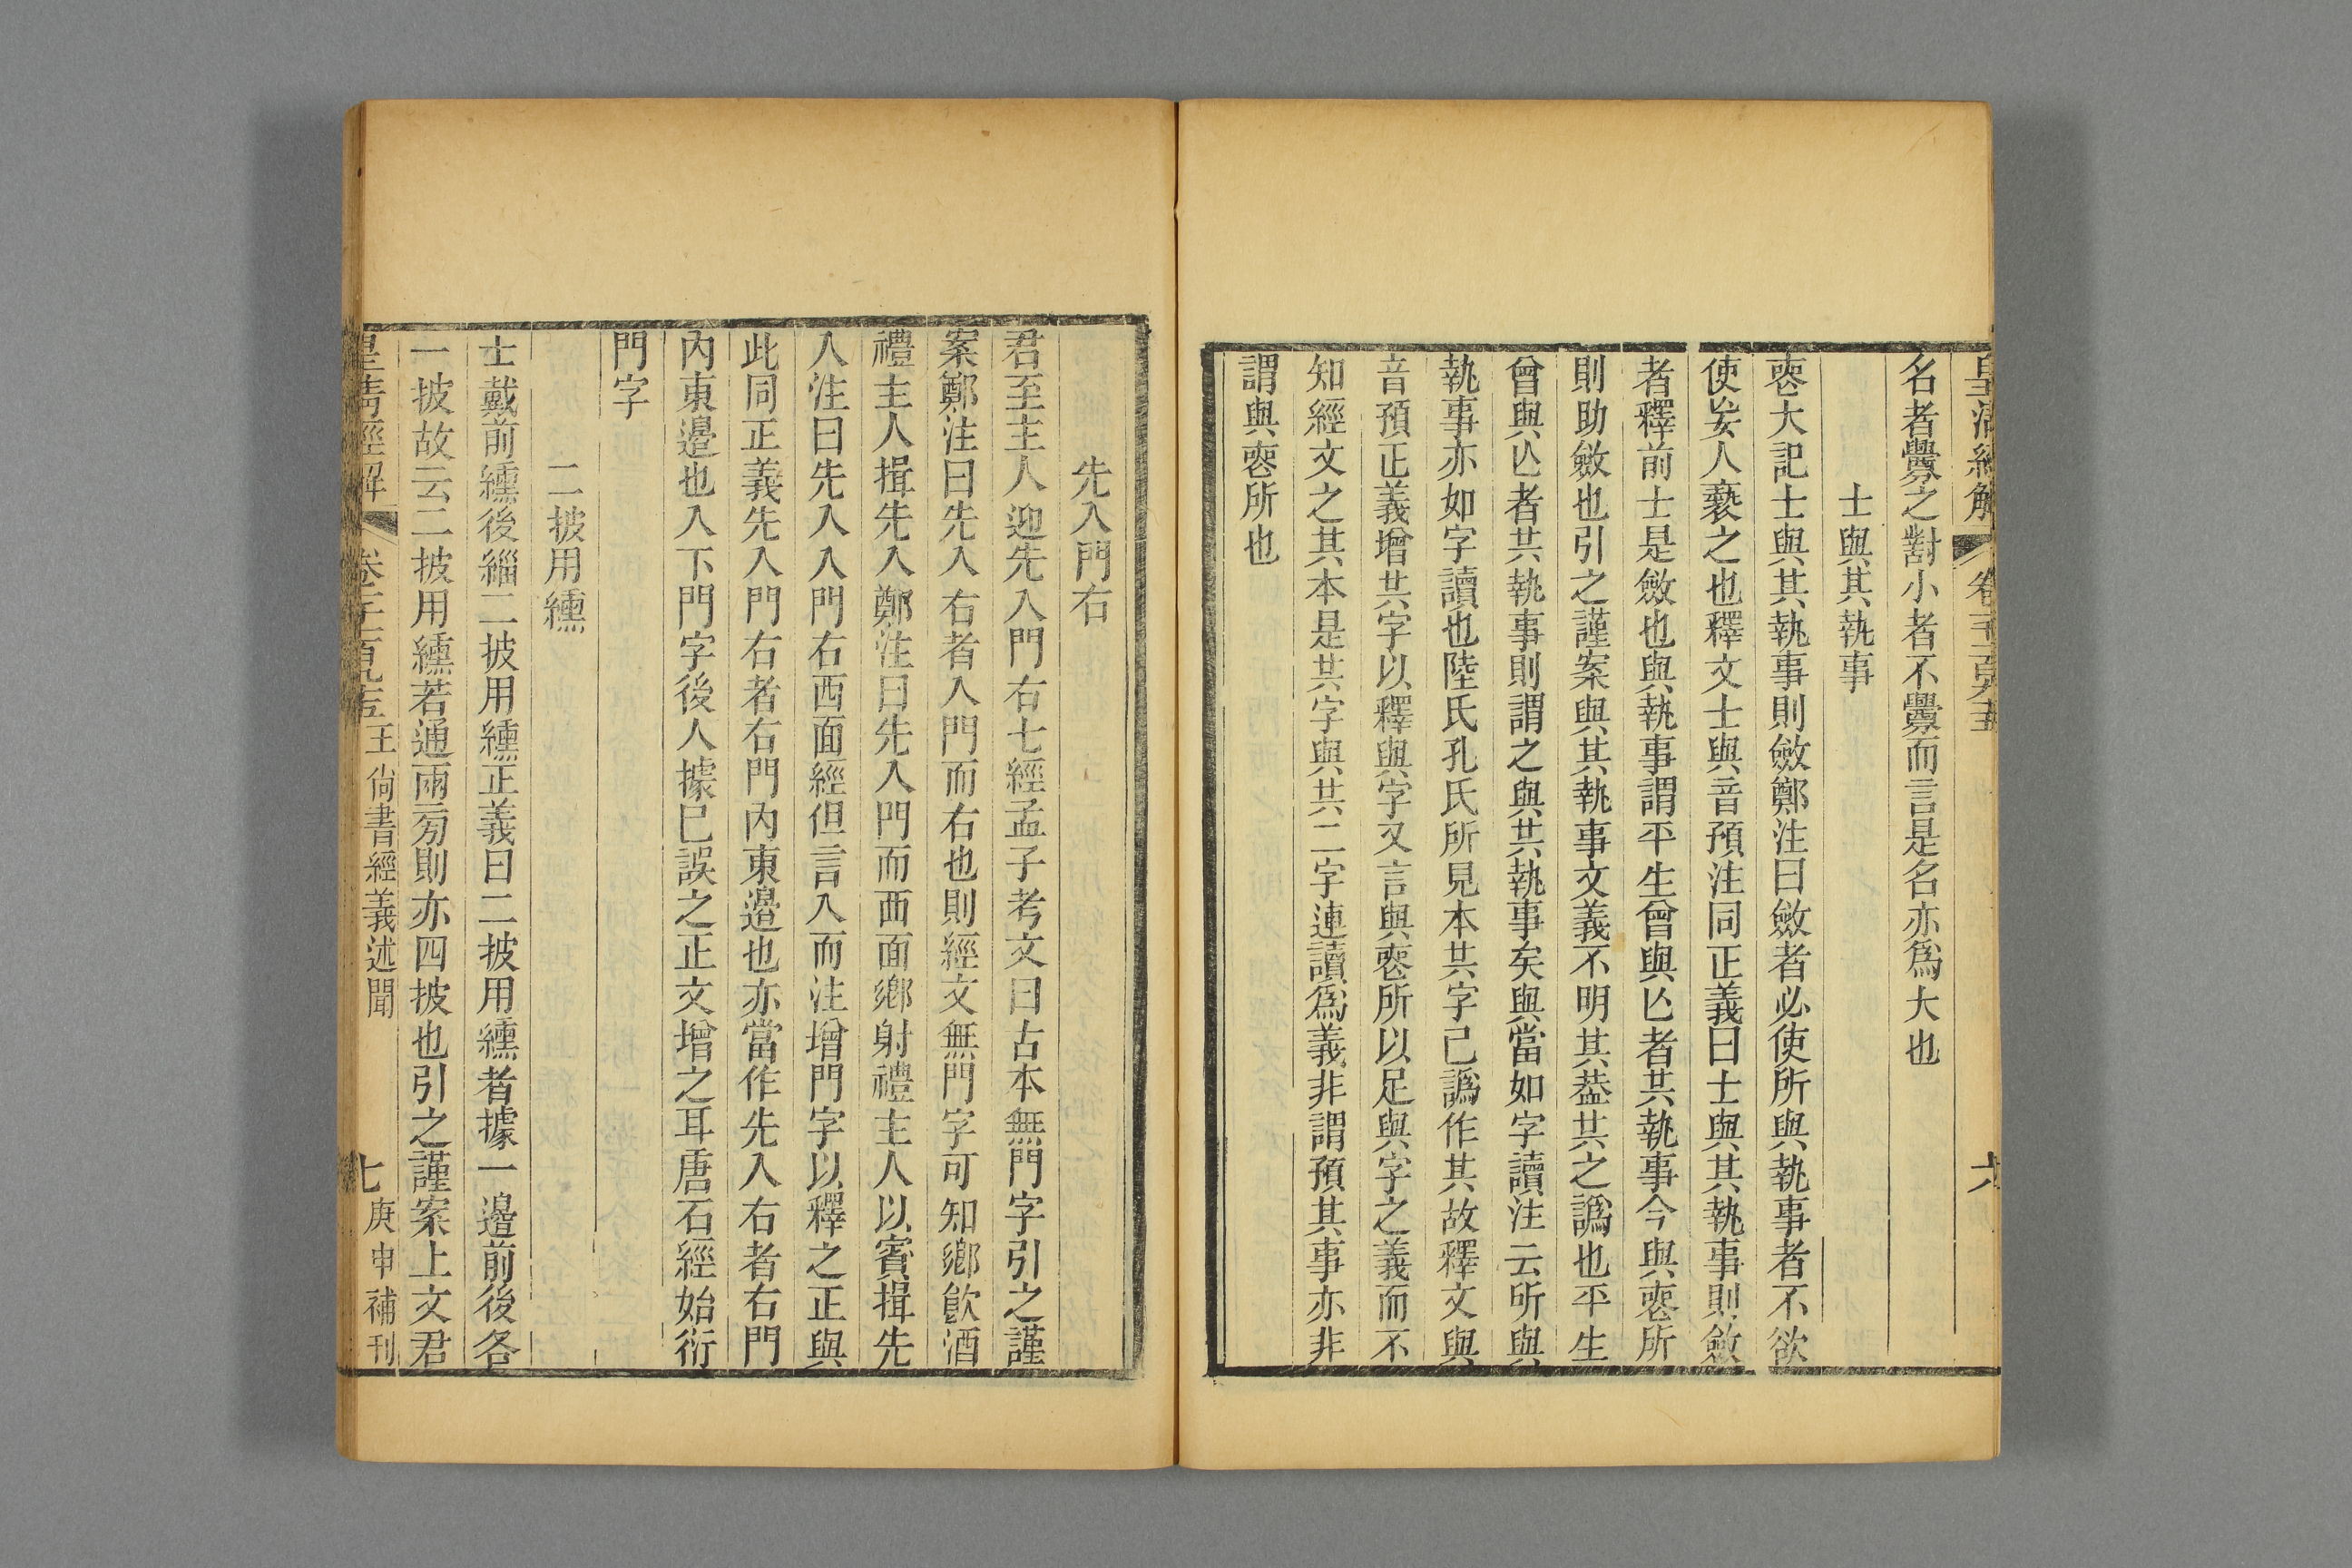 皇清經解
卷一千一百九十五
六
名者釁之對小者不釁而言是名亦爲大也
士與其執事
喪大記士與其執事則斂鄭注曰斂者必使所與執事者不欲
使妄人褻之也釋文士與音預注同正義曰士與其執事則斂
者釋前士是斂也與執事謂平生曾與亾者共執事今與喪所
則助斂也引之謹案與其執事文義不明其葢共之譌也平生
曾與亾者共執事則謂之與共執事矣與當如字讀注云所與
執事亦如字讀也陸氏孔氏所見本共字已譌作其故釋文與
音預正義增共字以釋與字又言與喪所以足與字之義而不
知經文之其本是共字與共二字連讀爲義非謂預其事亦非
謂與喪所也
先入門右
君至主人迎先入門右七經孟子考文曰古本無門字引之謹
案鄭注曰先入右者入門而右也則經文無門字可知鄉飮酒
禮主人揖先入鄭注曰先入門而西面鄉射禮主人以賓揖先
入注曰先入入門右西面經但言入而注增門字以釋之正與
此同正義先入門右者右門內東邉也亦當作先入右者右門
內東邉也入下門字後人據已誤之正文增之耳唐石經始衍
門字
二披用纁
士戴前纁後緇二披用纁正義曰二披用纁者據一邉前後各
一披故云二披用纁若通兩旁則亦四披也引之謹案上文君
皇清經解
王尙書經義述聞
七
庚申補刊